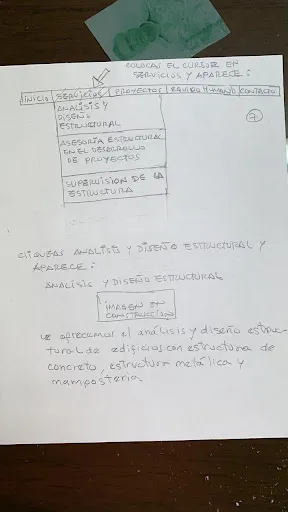 COLOCAS EL CURSOR EN
SERVICIOS Y APARECE:
INICIO SERVICIOS PROYECTOS EQUIPO HUMANO CONTACTO
ANALISIS Y
DISEÑO
ESTRUCTURAL
7
ASESORÍA ESTRUCTURAL
EN EL DESARROLLO
DE PROYECTOS
SUPERVISION DE LA
ESTRUCTURA
CLIQUEAS ANALISIS Y DISEÑO ESTRUCTURAL Y
APARECE:
ANALÍSIS Y DISEÑO ESTRUCTURAL
IMAGEN EN
CONSTRUCCION
LE ofrecemos el análisis y diseño estruc-
tural de edificios con estructura de
concreto, estructura metálica y
mampostería